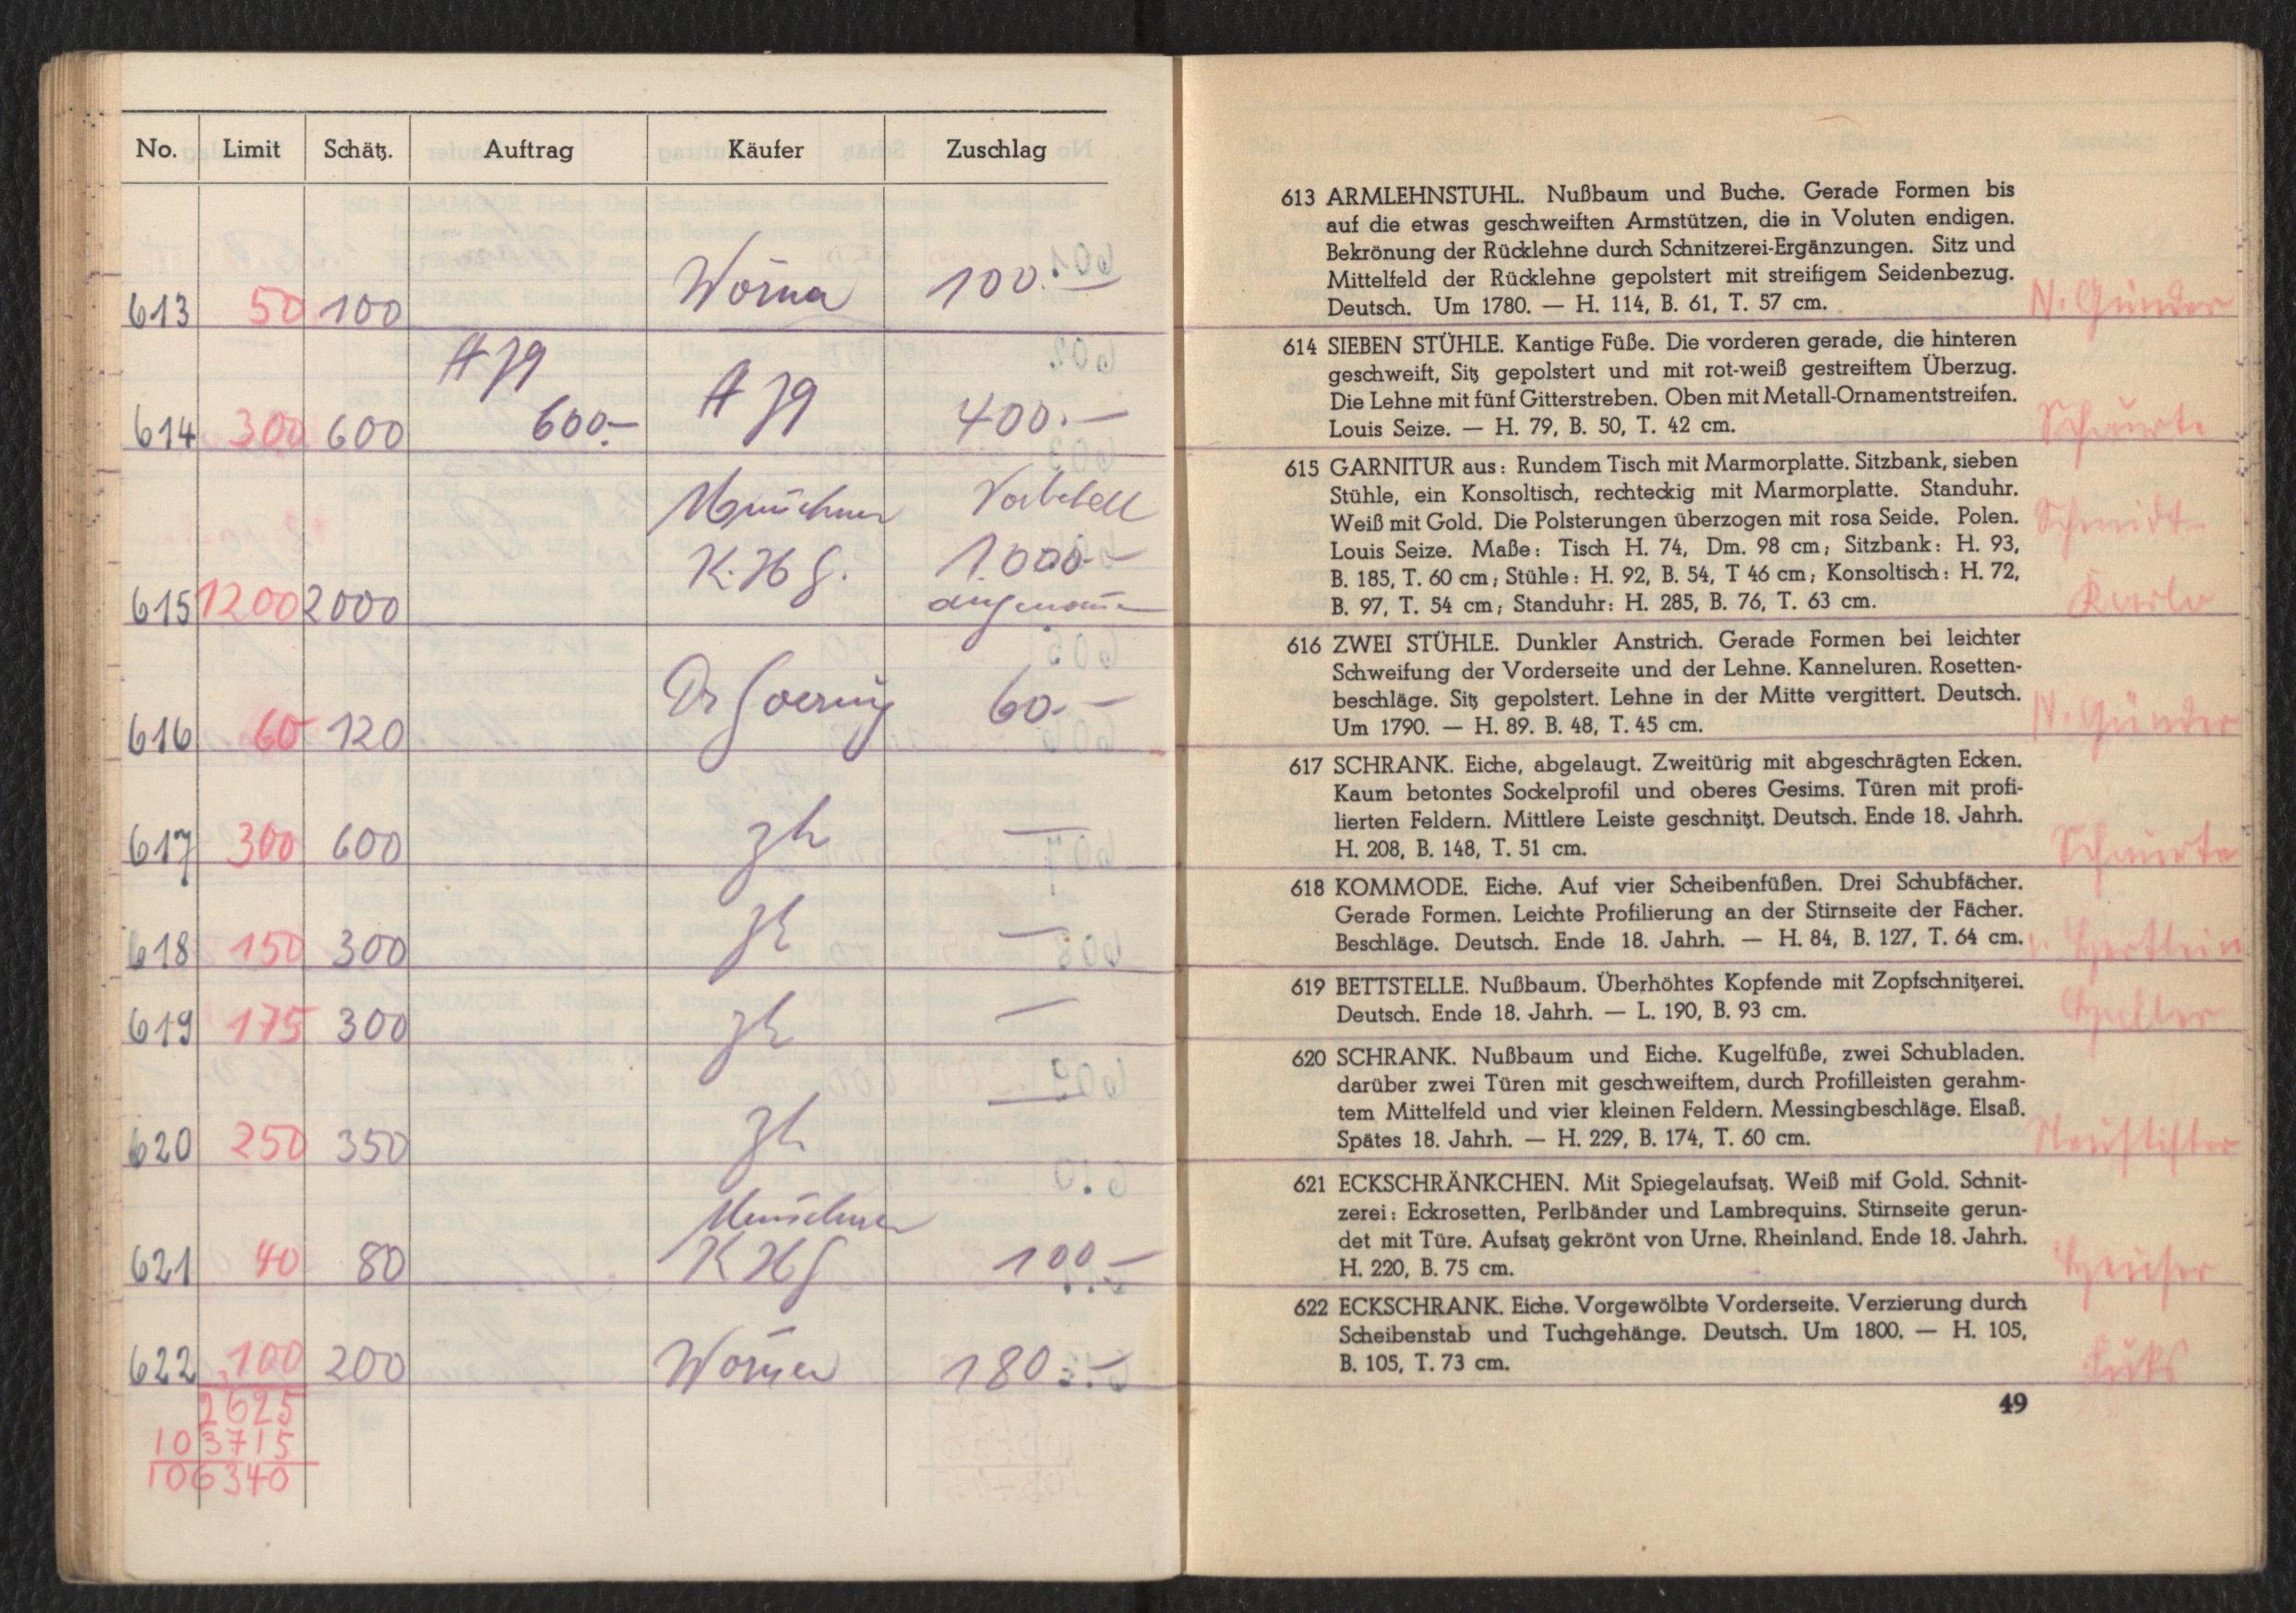 No. Limit Schätz. Auftrag Käufer Zuschlag
613 50 100 Wörna 100.—
A 79
614 300 600 600.— A 79 400.—
Münchner Vorbehalt
K.Hg. 1000.—
615 1200 2000 angenomm
616 60 120 Dr Goering 60.—
617 300 600 zh —
618 150 300 zh —
619 175 300 zh —
620 250 350 zh —
Münchner
621 40 80 KHg 100.—
622 100 200 Wörner 180.—
2625
103715
106340
613 ARMLEHNSTUHL. Nußbaum und Buche. Gerade Formen bis
auf die etwas geschweiften Armstützen, die in Voluten endigen.
Bekrönung der Rücklehne durch Schnitzerei-Ergänzungen. Sitz und
Mittelfeld der Rücklehne gepolstert mit streifigem Seidenbezug.
Deutsch. Um 1780. — H. 114, B. 61, T. 57 cm. N. Günder
614 SIEBEN STÜHLE. Kantige Füße. Die vorderen gerade, die hinteren
geschweift, Sitz gepolstert und mit rot-weiß gestreiftem Überzug.
Die Lehne mit fünf Gitterstreben. Oben mit Metall-Ornamentstreifen.
Louis Seize. — H. 79, B. 50, T. 42 cm. Schuirte
615 GARNITUR aus: Rundem Tisch mit Marmorplatte. Sitzbank, sieben
Stühle, ein Konsoltisch, rechteckig mit Marmorplatte. Standuhr.
Weiß mit Gold. Die Polsterungen überzogen mit rosa Seide. Polen. Schmidt-
Louis Seize. Maße: Tisch H. 74, Dm. 98 cm; Sitzbank: H. 93,
B. 185, T. 60 cm; Stühle: H. 92, B. 54, T 46 cm; Konsoltisch: H. 72,
B. 97, T. 54 cm; Standuhr: H. 285, B. 76, T. 63 cm.
616 ZWEI STÜHLE. Dunkler Anstrich. Gerade Formen bei leichter
Schweifung der Vorderseite und der Lehne. Kanneluren. Rosetten-
beschläge. Sitz gepolstert. Lehne in der Mitte vergittert. Deutsch.
Um 1790. — H. 89. B. 48, T. 45 cm. N. Günder
617 SCHRANK. Eiche, abgelaugt. Zweitürig mit abgeschrägten Ecken.
Kaum betontes Sockelprofil und oberes Gesims. Türen mit profi-
lierten Feldern. Mittlere Leiste geschnitzt. Deutsch. Ende 18. Jahrh.
H. 208, B. 148, T. 51 cm. Schuirte
618 KOMMODE. Eiche. Auf vier Scheibenfüßen. Drei Schubfächer.
Gerade Formen. Leichte Profilierung an der Stirnseite der Fächer.
Beschläge. Deutsch. Ende 18. Jahrh. — H. 84, B. 127, T. 64 cm. Hertlein
619 BETTSTELLE. Nußbaum. Überhöhtes Kopfende mit Zopfschnitzerei.
Deutsch. Ende 18. Jahrh. — L. 190, B. 93 cm. Heller
620 SCHRANK. Nußbaum und Eiche. Kugelfüße, zwei Schubladen.
darüber zwei Türen mit geschweiftem, durch Profilleisten gerahm-
tem Mittelfeld und vier kleinen Feldern. Messingbeschläge. Elsaß.
Spätes 18. Jahrh. — H. 229, B. 174, T. 60 cm. Neustifter
621 ECKSCHRÄNKCHEN. Mit Spiegelaufsatz. Weiß mif Gold. Schnit-
zerei: Eckrosetten, Perlbänder und Lambrequins. Stirnseite gerun-
det mit Türe. Aufsatz gekrönt von Urne. Rheinland. Ende 18. Jahrh.
H. 220, B. 75 cm. Heuser
622 ECKSCHRANK. Eiche. Vorgewölbte Vorderseite. Verzierung durch
Scheibenstab und Tuchgehänge. Deutsch. Um 1800. — H. 105,
B. 105, T. 73 cm.
49